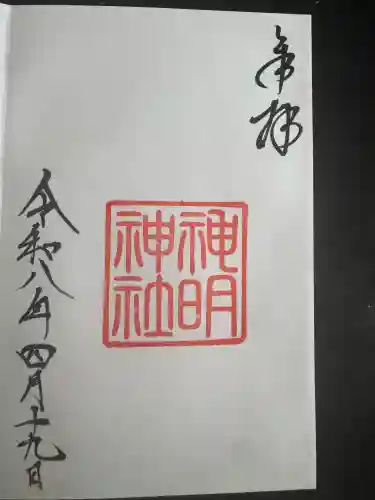 奉拝
神明
神社
令和八年四月十九日